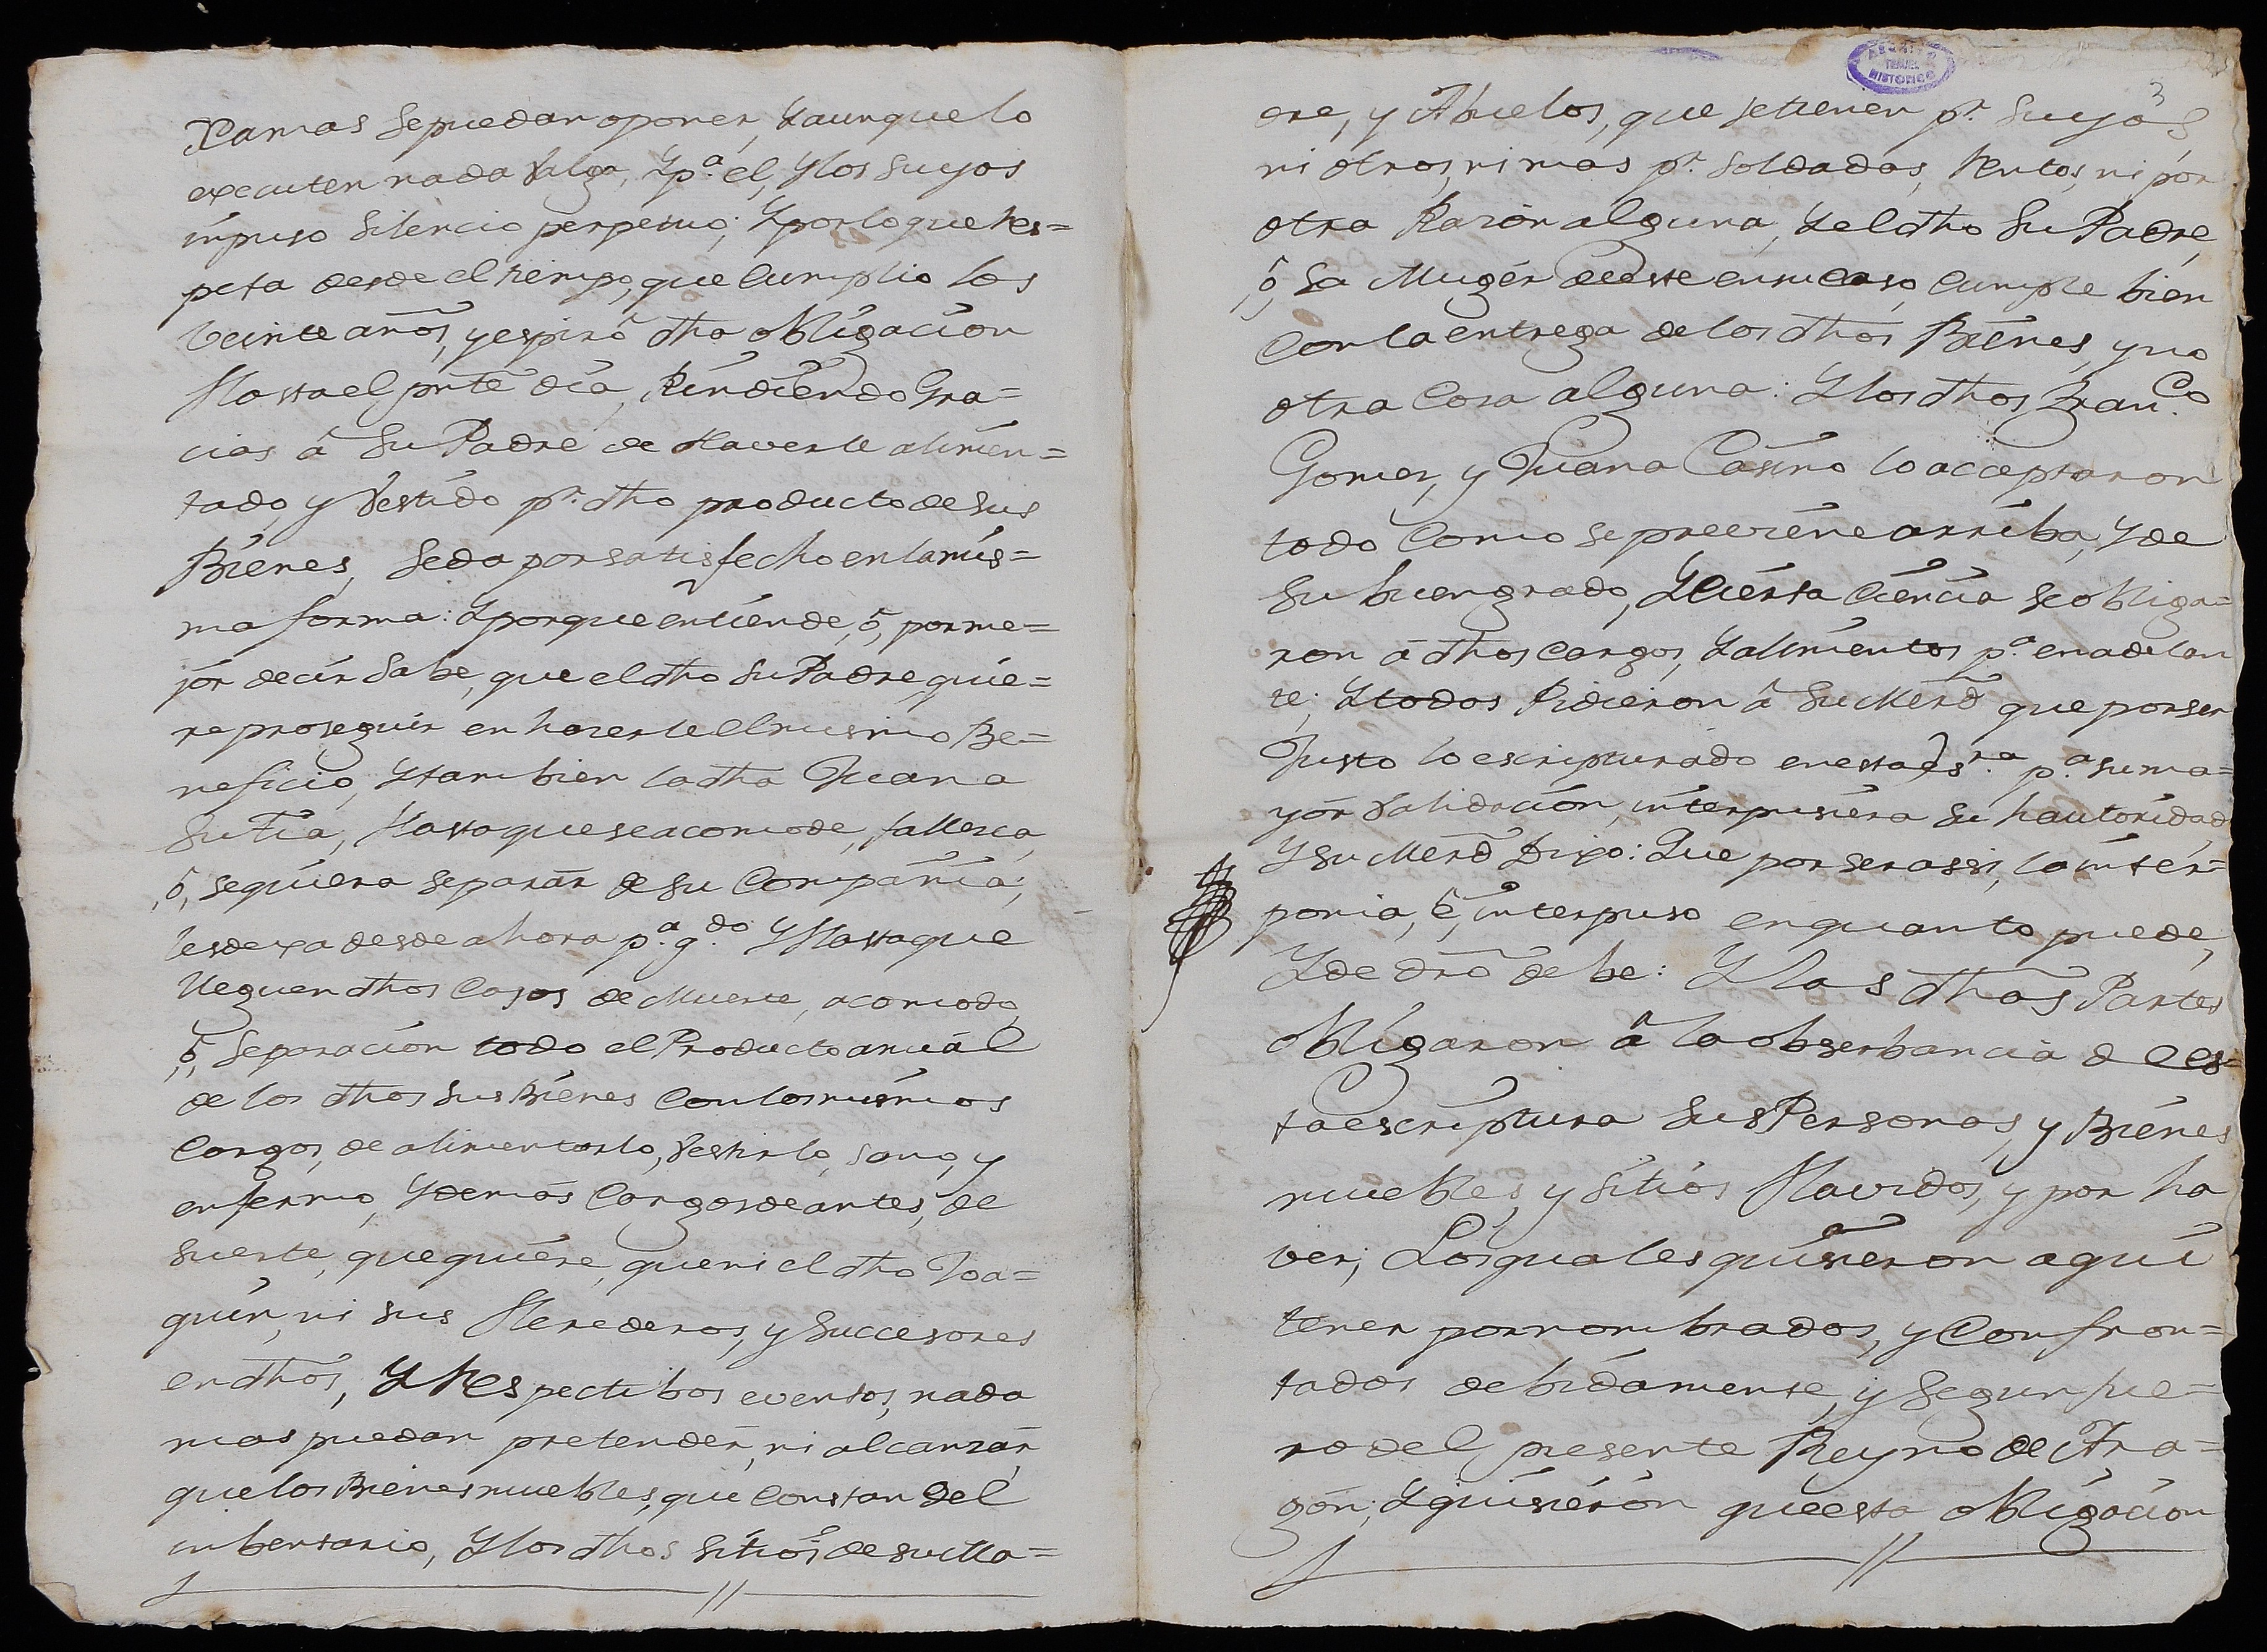 Xamas se puedan oponer, Y aunque lo
executen nada valga, Y p.ª el, y los suyos
impuso silencio perpetuo; Y por lo que res=
peta desde el tiempo, que cumplio los
veinte años, y espirò dha obligacion
Hasta el pnte dia, Rindiendo Gra=
cias â su Padre de Haverle alimen=
tado, y vestido p.r dho producto de sus
Bienes, se da por satisfecho en la mis=
ma forma: Y porque entiende, ò, por me=
jor decir sabe, que el dho su Padre quie=
re proseguir en hacerle el mismo Be=
neficio, Y tambien la dha Juana
su Tia, Hasta que se acomode, fallesca,
,ò, se quiera separar de su Compañia;
les dexa desde ahora p.ª q.do Y Hasta que
lleguen dhos Casos de Muerte, acomodo,
,ò, separacion todo el Producto anuàl
de los dhos sus Bienes con los mismos
Cargos, de alimentarlo, vestirlo, sano, y
enfermo, Y demas Cargos de antes, de
suerte, que quiere, que ni el dho Joa=
quin, ni sus Herederos, y successores
en dhos, Y Respectibos eventos, nada
mas puedan pretender, ni alcanzar,
que los Bienes muebles, que Constan del
inbentario, Y los dhos sitios de su Ma=
ARCHIVO
TERUEL
HISTORICO
3
dre, y Abuelos, que se tienen p.r suyos,
ni otros, ni mas p.r soldadas, Rutos, ni por
otra Razón alguna, Y el dho su Padre,
,ò, la Muger de este en su caso, cumple bien
con la entrega de los dhos Bienes, y no
otra Cosa alguna: Y los dhos Fran.co
Gomez, y Juana Casino lo acceptaron
todo Como se previene arriba, Y de
su buen grado, Y cierta Ciencia se obliga=
ron â dhos Cargos, Y alimentos p.ª en adelan
te; Y todos Pidieron â su Merd que por ser
Justo lo escripturado en esta es.ra p.ª su ma=
yor validacion, interpusiera su hautoridad
Y su Merd Dixo: Que por ser assi, la inter=
ponia, è, interpuso en quanto puede,
Y de dro debe: Y las dhas Partes
obligaron â la obserbancia de es=
ta escriptura sus Personas, y Bienes
muebles, y sitios Havidos, y por ha
ver; Los quales quisieron aqui
tener por nombrados, y Confron=
tados debidamente, y segun fue=
ro del presente Reyno de Ara=
gon; Y quisieron que esta obligacion